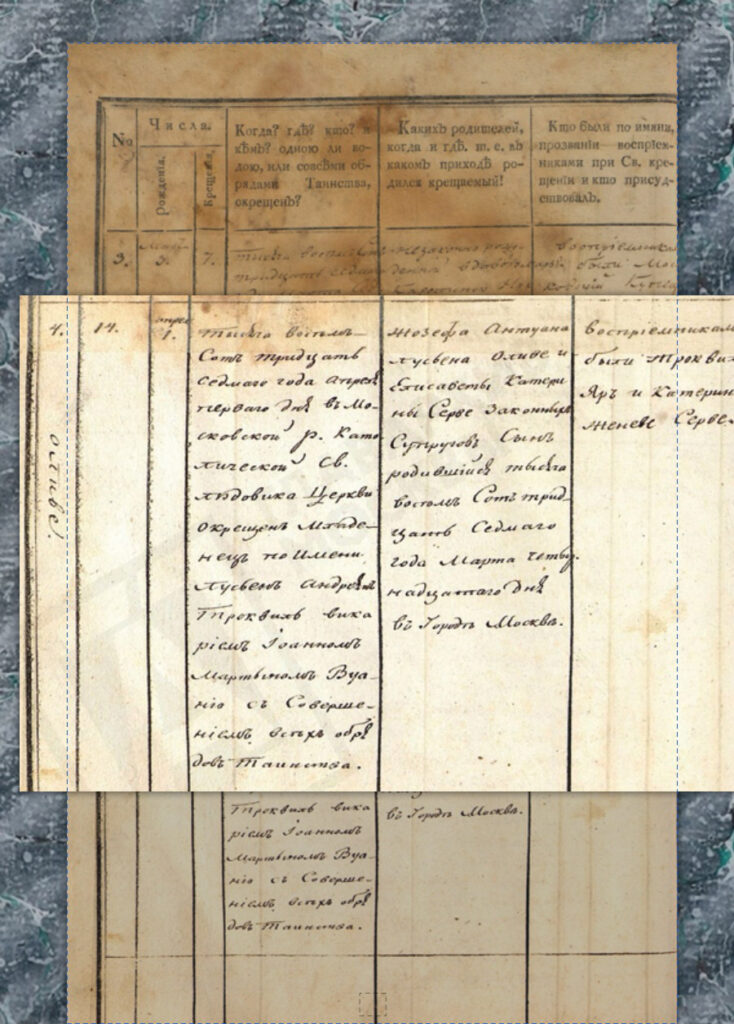 №
Числа.
Рожденія.
Крещенія.
Когда? гдѣ? кто? и
кѣмъ? одною ли во-
дою, или совсѣми об-
рядами Таинства,
окрещенъ?
Какихъ родителей,
когда и гдѣ. т. е. въ
какомъ приходѣ ро-
дился крещаемый!
Кто были по имяни,
прозванїи воспрїем-
никами при Св. кре-
щенїи и кто присуд-
ствовалъ.
3.
3.
7.
тысяча восемьсотъ
тридцать седьмаго
воспріемника
были Мос
4.
Оливье.
14.
апреля
1.
тысяча восемь-
Сотъ тридцать
Седмаго года Апреля
перваго дня въ Мо-
сковской Р. Като
лической Св.
Людовика Церкви
Окрещенъ Младе-
нецъ по Имени
Лусьенъ Андрей
Троквиль вика
ріемъ Іоанномъ
Мартыномъ Вуа-
нію съ Соверше-
ніемъ всѣхъ обря
довъ Таинства.
Жозефа Антуана
Лусьена Оливе и
Елисаветы Катери
ны Серве Законныхъ
Супруговъ Сынъ
родившійся тысяча
восемь Сотъ трид-
цать Седмаго
года Марта Четыр
надцатаго дня
въ Городѣ Москвѣ.
Воспріемникам
были Троквил
Яръ и Катерин
Женеве Серве.
Троквиль вика
ріемъ Іоанномъ
Мартыномъ Вуа-
нію съ Соверше-
ніемъ всѣхъ обря
довъ Таинства.
въ Городѣ Москвѣ.